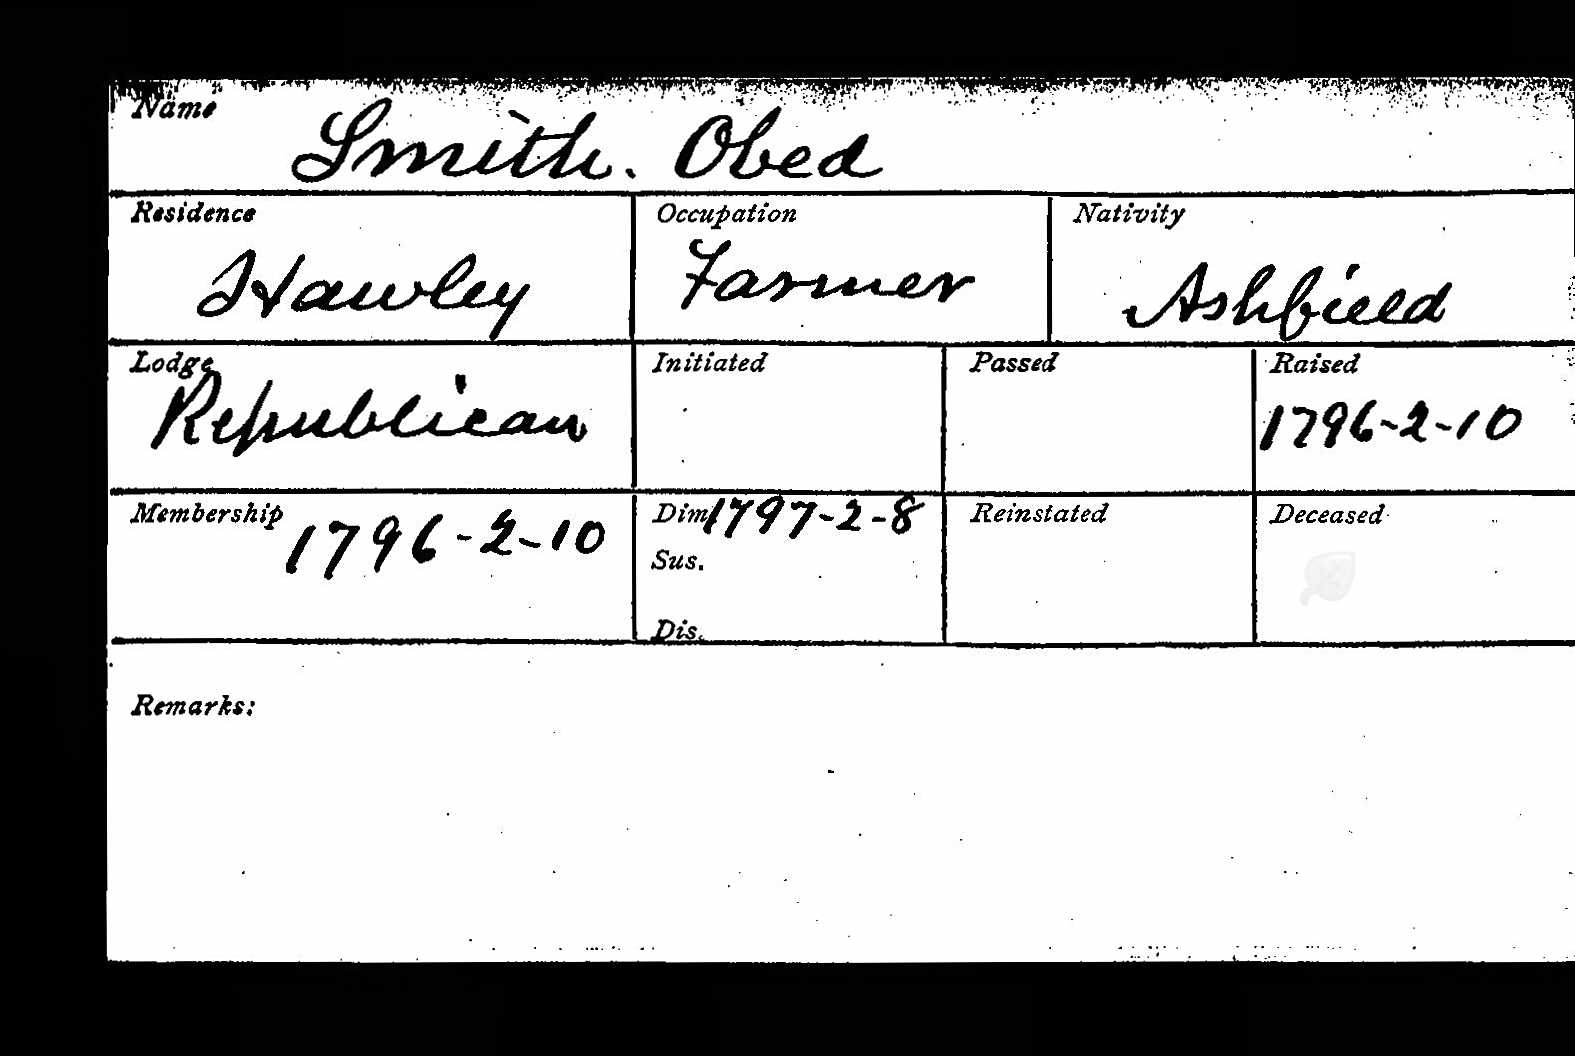 Name
Smith. Obed
Residence Occupation Nativity
Hawley Farmer Ashfield
Lodge Initiated Passed Raised
Republican 1796-2-10
Membership 1796-2-10 Dim. 1797-2-8 Reinstated Deceased
Sus.
Dis.
Remarks: